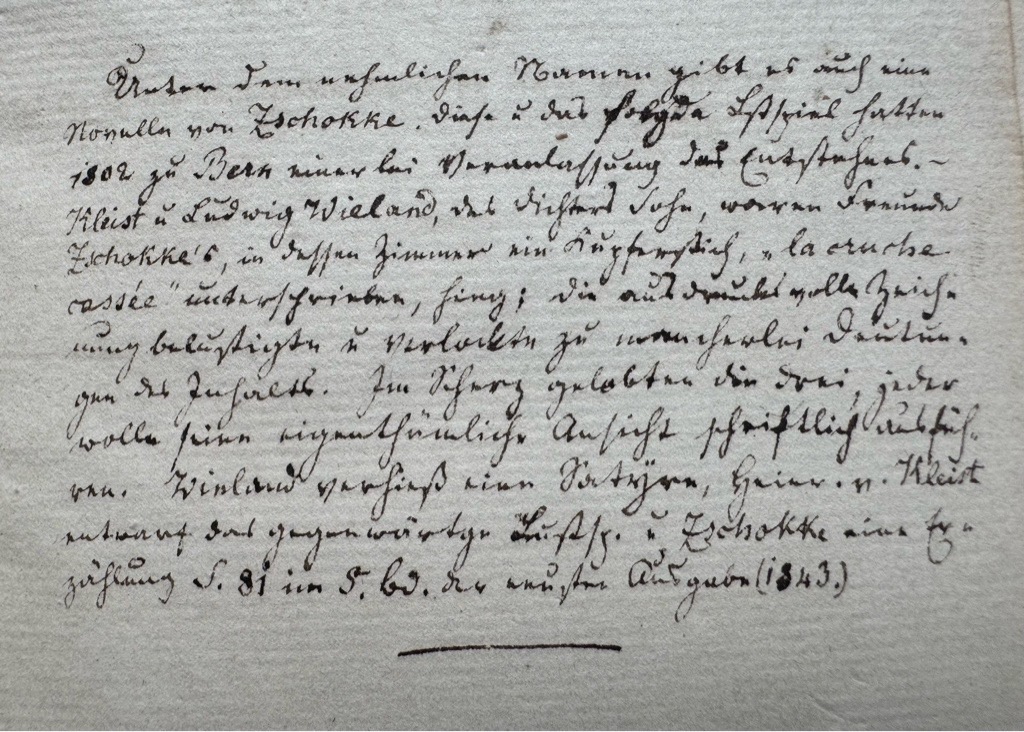 Unter dem nehmlichen Namen gibt es auch eine
Novelle von Zschokke. Diese u das folgde Lstspiel hatten
1802 zu Bern einerlei Veranlassung des Entstehens. –
Kleist u Ludwig Wieland, des Dichters Sohn, waren Freunde
Zschokke's, in dessen Zimmer ein Kupferstich, „la cruche
cassée" unterschrieben, hing; die ausdrucksvolle Zeich-
nung belustigte u verlockte zu mancherlei Deutun-
gen des Inhalts. Im Scherz gelobten die drei, jeder
wolle seine eigenthümliche Ansicht schriftlich ausfüh-
ren. Wieland verhieß eine Satyre, Heinr. v. Kleist
entwarf das gegenwärtge Lustsp. u Zschokke eine Er-
zählung S. 81 im 5. bd. der neusten Ausgabe (1843.)